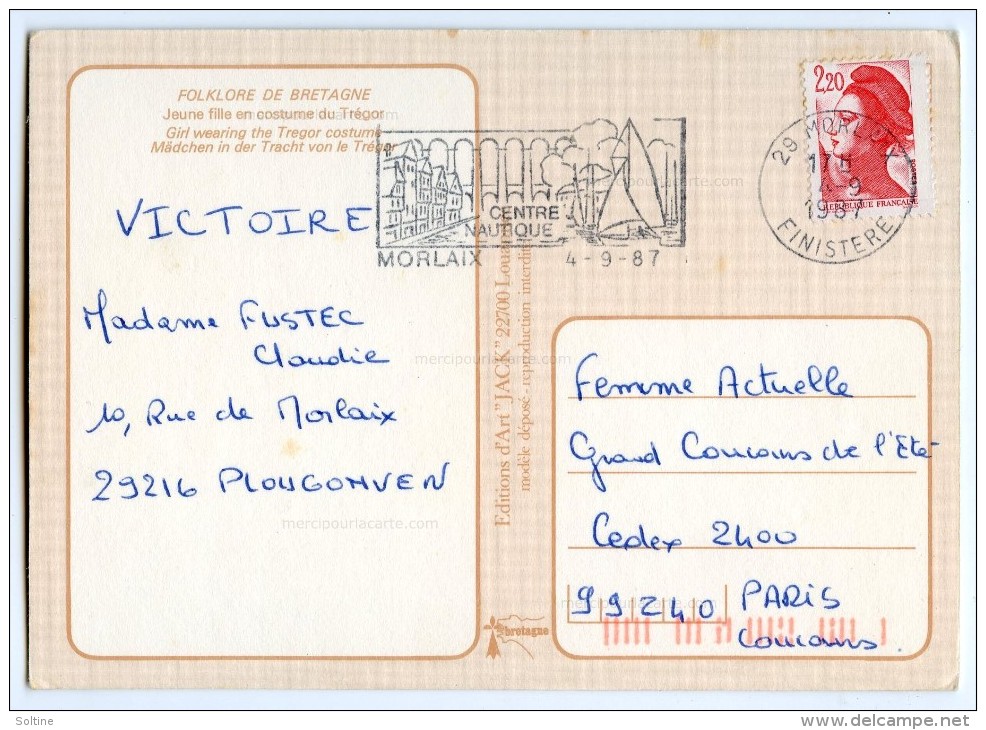 FOLKLORE DE BRETAGNE
Jeune fille en costume du Trégor
Girl wearing the Tregor costume
Mädchen in der Tracht von le Trégor
VICTOIRE
Madame FUSTEC
Claudie
10, Rue de Morlaix
29216 PLOUGONVEN
CENTRE
NAUTIQUE
MORLAIX 4-9-87
Editions d'Art "JACK" 22700
modèle déposé - reproduction interdite
2,20
REPUBLIQUE FRANCAISE
29 MORLAIX
17H
4-9
1987
FINISTERE
Femme Actuelle
Grand Concours de l'Eté
Cedex 2400
99240 PARIS
Concours
bretagne
mercipourlacarte.com
mercipourlacarte.com
mercipourlacarte.com
mercipourlacarte.com
Soltine
www.delcampe.net